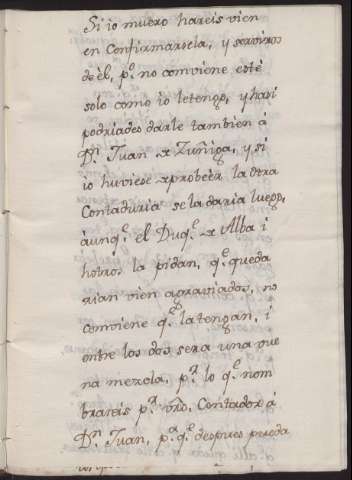 Si io muero hareis vien
en Confirmarsela, y serviros
de él, p.º no comviene esté
solo como io letengo, y hasi
podriades darle tambien á
D.n Juan de Zuñiga, y si
io huviese de probeer la otra
Contaduria se la daria luego,
áunq.e el Duq.e de Alba i
hotros la pidan, q.e queda
rian vien agraviados, no
comviene q.e la tengan, i
entre los dos sera una vue
na mezcla, p.a lo q.e nom
brareis p.a Contador á
D.n Juan, p.a q.e despues pueda